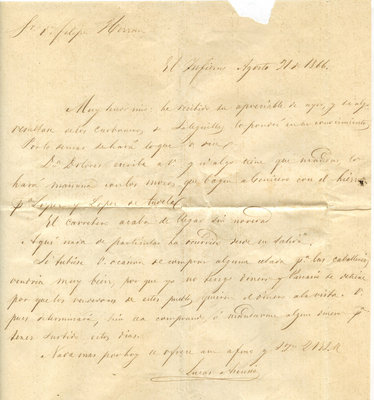 Sr. Dn. Felipe Herran
El Infierno Agosto 31 de 1866.
Muy señor mio: he recibido su apreciable de ayer, y si algo
resultan de los carboneros de lo pondré en su conocimiento,
Por lo demas se hará lo que
Da. Dolores escribe a V. y si algo tiene que mandar, lo
hará mañana con los mozos, que bajan a Comicero con el hierro
pa. Lopez y Lopez de
El carretero acaba de llegar sin novedad
Aqui nada de particular ha ocurrido desde su salida,
Si tubiese V. ocasion de comprar alguna cebada pa. las caballerias,
vendria muy bien, por que yo no tengo dinero y
por que los vecinos de estos pueblos quieren el dinero a la vista. V.
pues determinará, si la comprando ó mandarme algun dinero pa.
tener surtido estos dias.
Nada mas por hoy se ofrece su afmo. y
Lucas